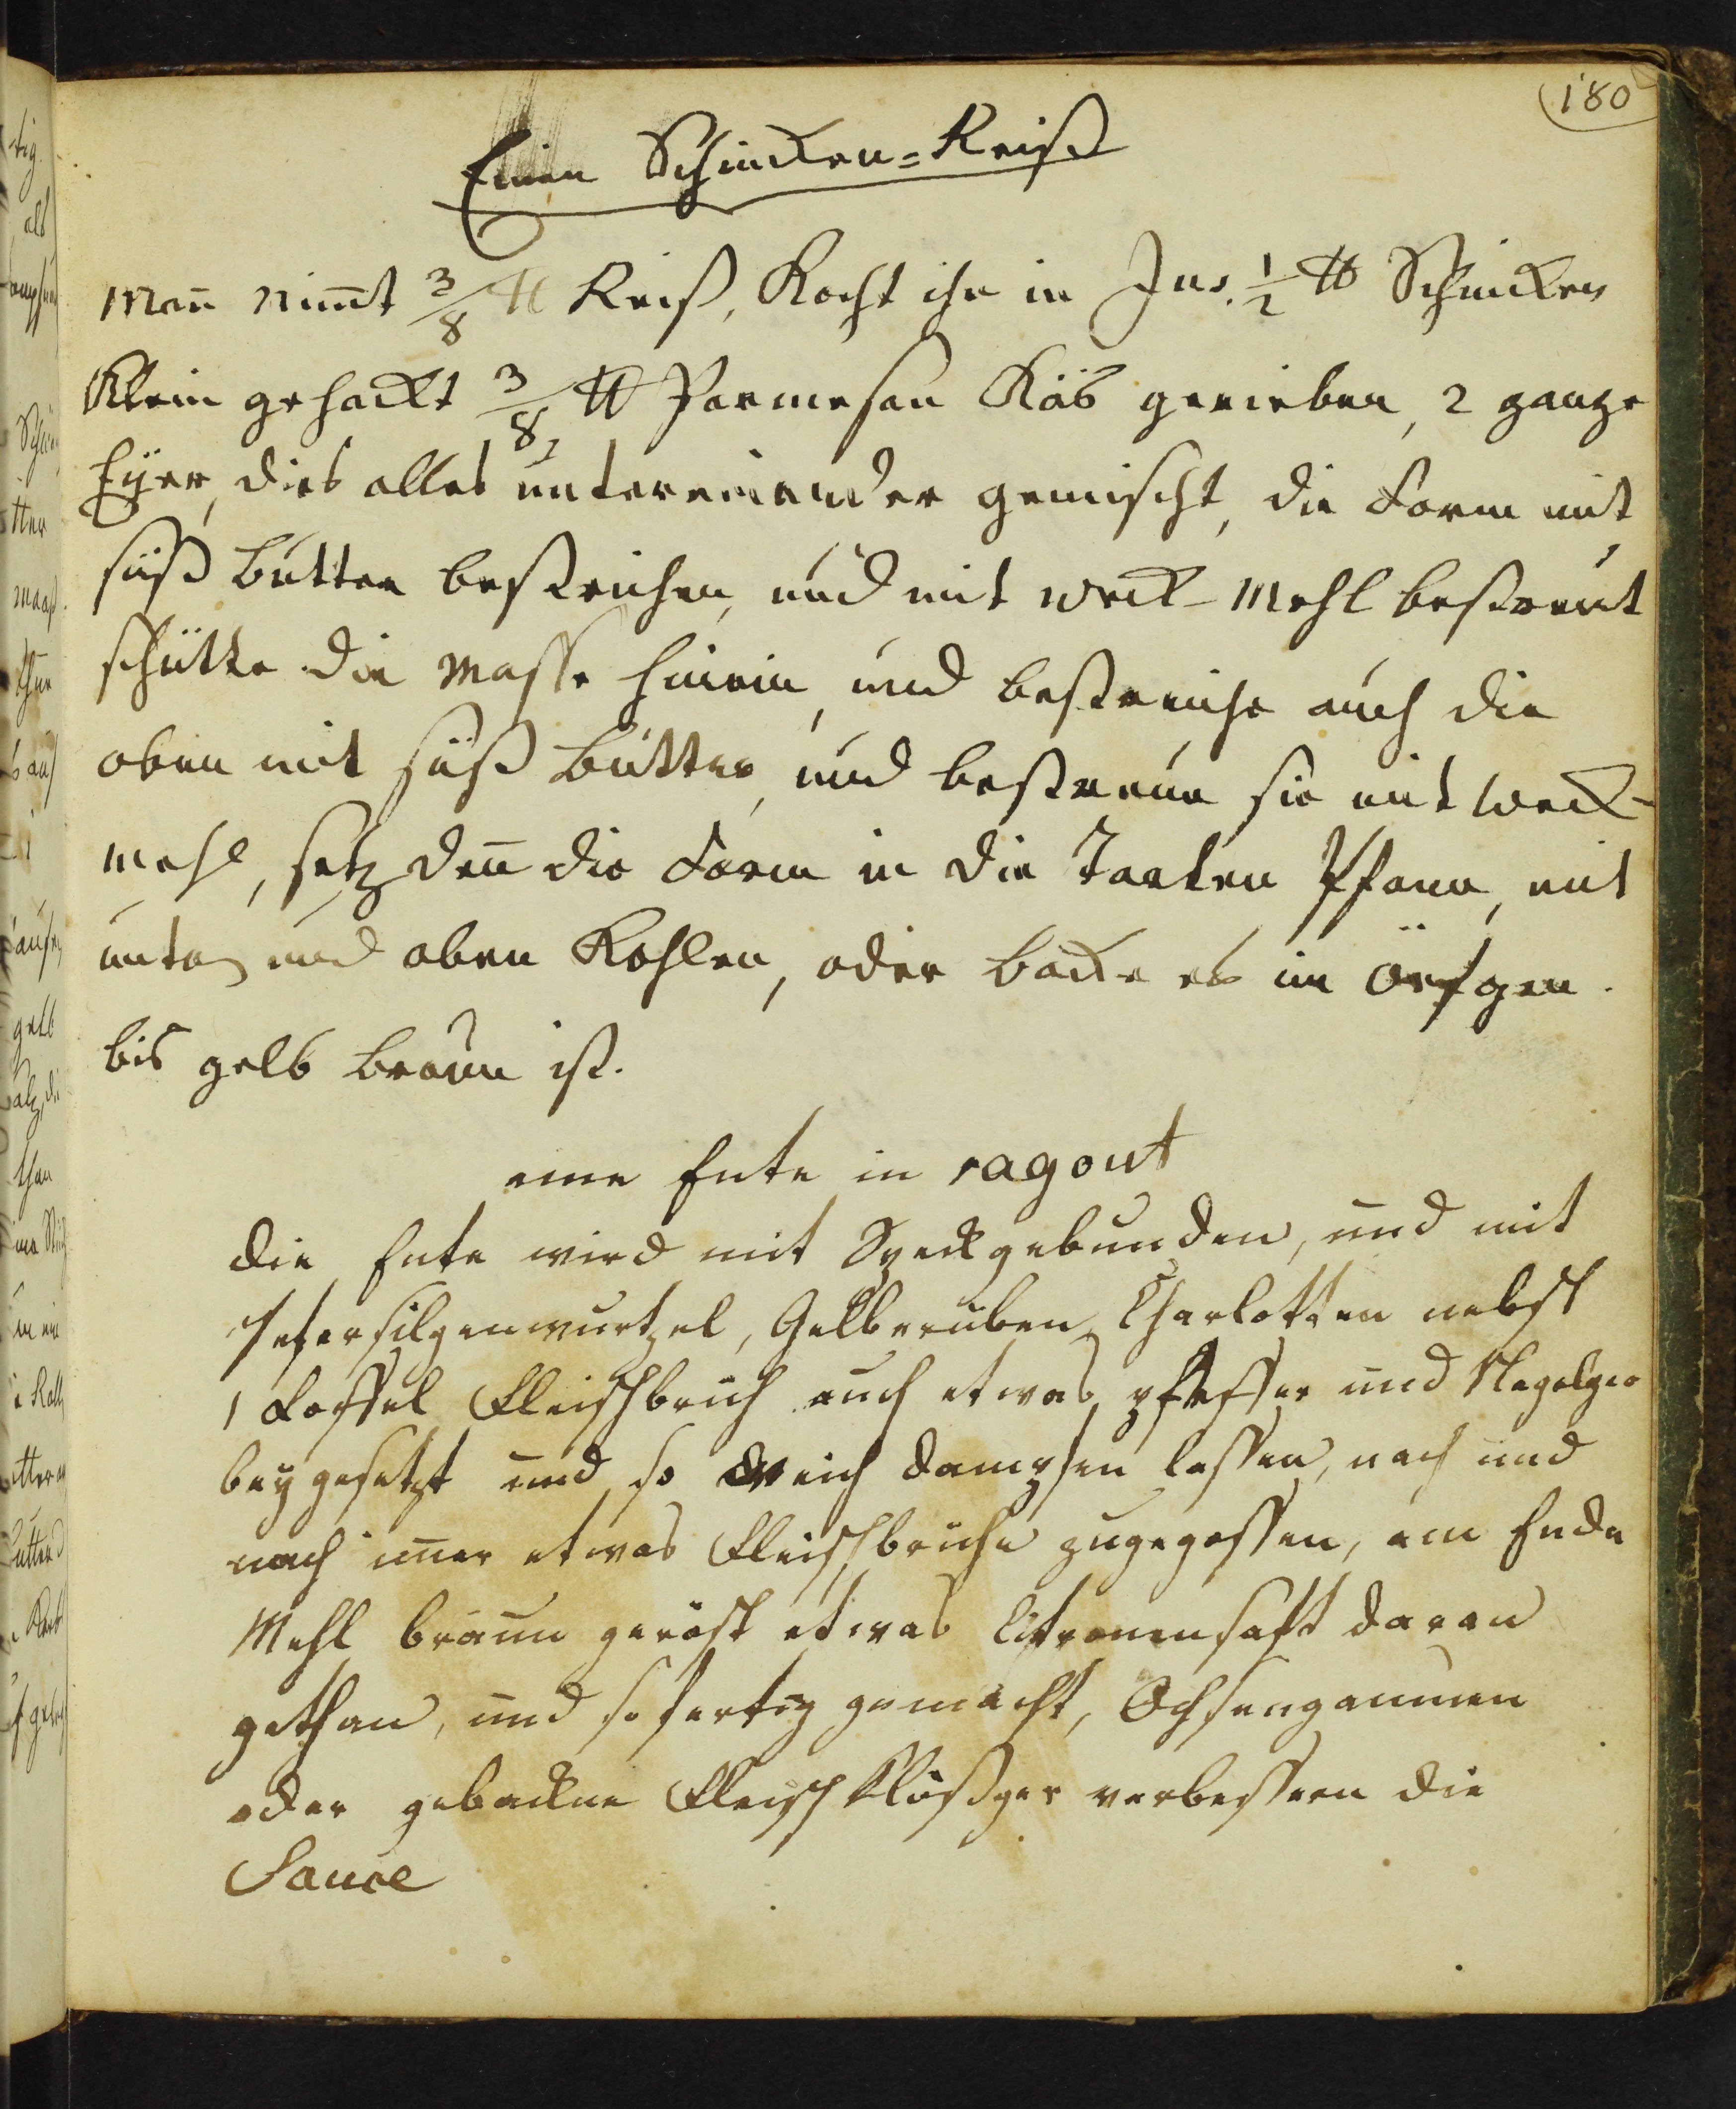 180
Einen Schincken=Reiß
Man̄ nim̄t 3/8 ℔ Reiß, Kocht ihn in Jus. 1/2 ℔ Schincken
Klein gehackt 3/8 ℔ Parmesan Käs gerieben, 2 ganze
Eÿer, dies alles untereinander gemischt, die Form mit
süß Butter bestrichen, und mit Weck-Mehl bestreut
schütte die Masse hinein, und bestreiche auch die
oben mit süß Butter, und bestreue sie mit Weck-
mehl, setz den̄ die Form in die Tarten Pfann, mit
unten und oben Kohlen, oder backe es im Öefgen.
bis gelb braun ist.
eine Ente in ragout
die Ente wird mit Speck gebunden, und mit
Petersilgenwurtzel, Gelberüben, Charlotten nebst
1 Loffel Fleischbrüh auch etwas pfeffer und Nagelger
beygesetzt und so weich dampfen lassen, nach und
nach im̄er etwas Fleischbrühe zugegossen, am Ende
Mehl braun geröst etwas Citronensaft daran
gethan, und so fertig gemacht, Ochsengaumen
oder gebackne Fleisch Klößger verbessern die
Sauce